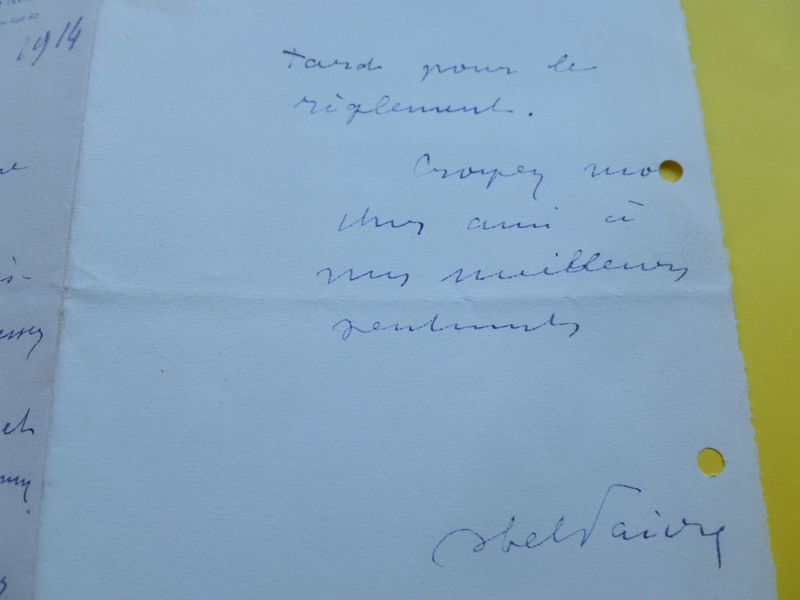 1914
tard pour le
règlement.
Croyez moi
cher ami à
mes meilleurs
sentiments
et
Abel Faivre